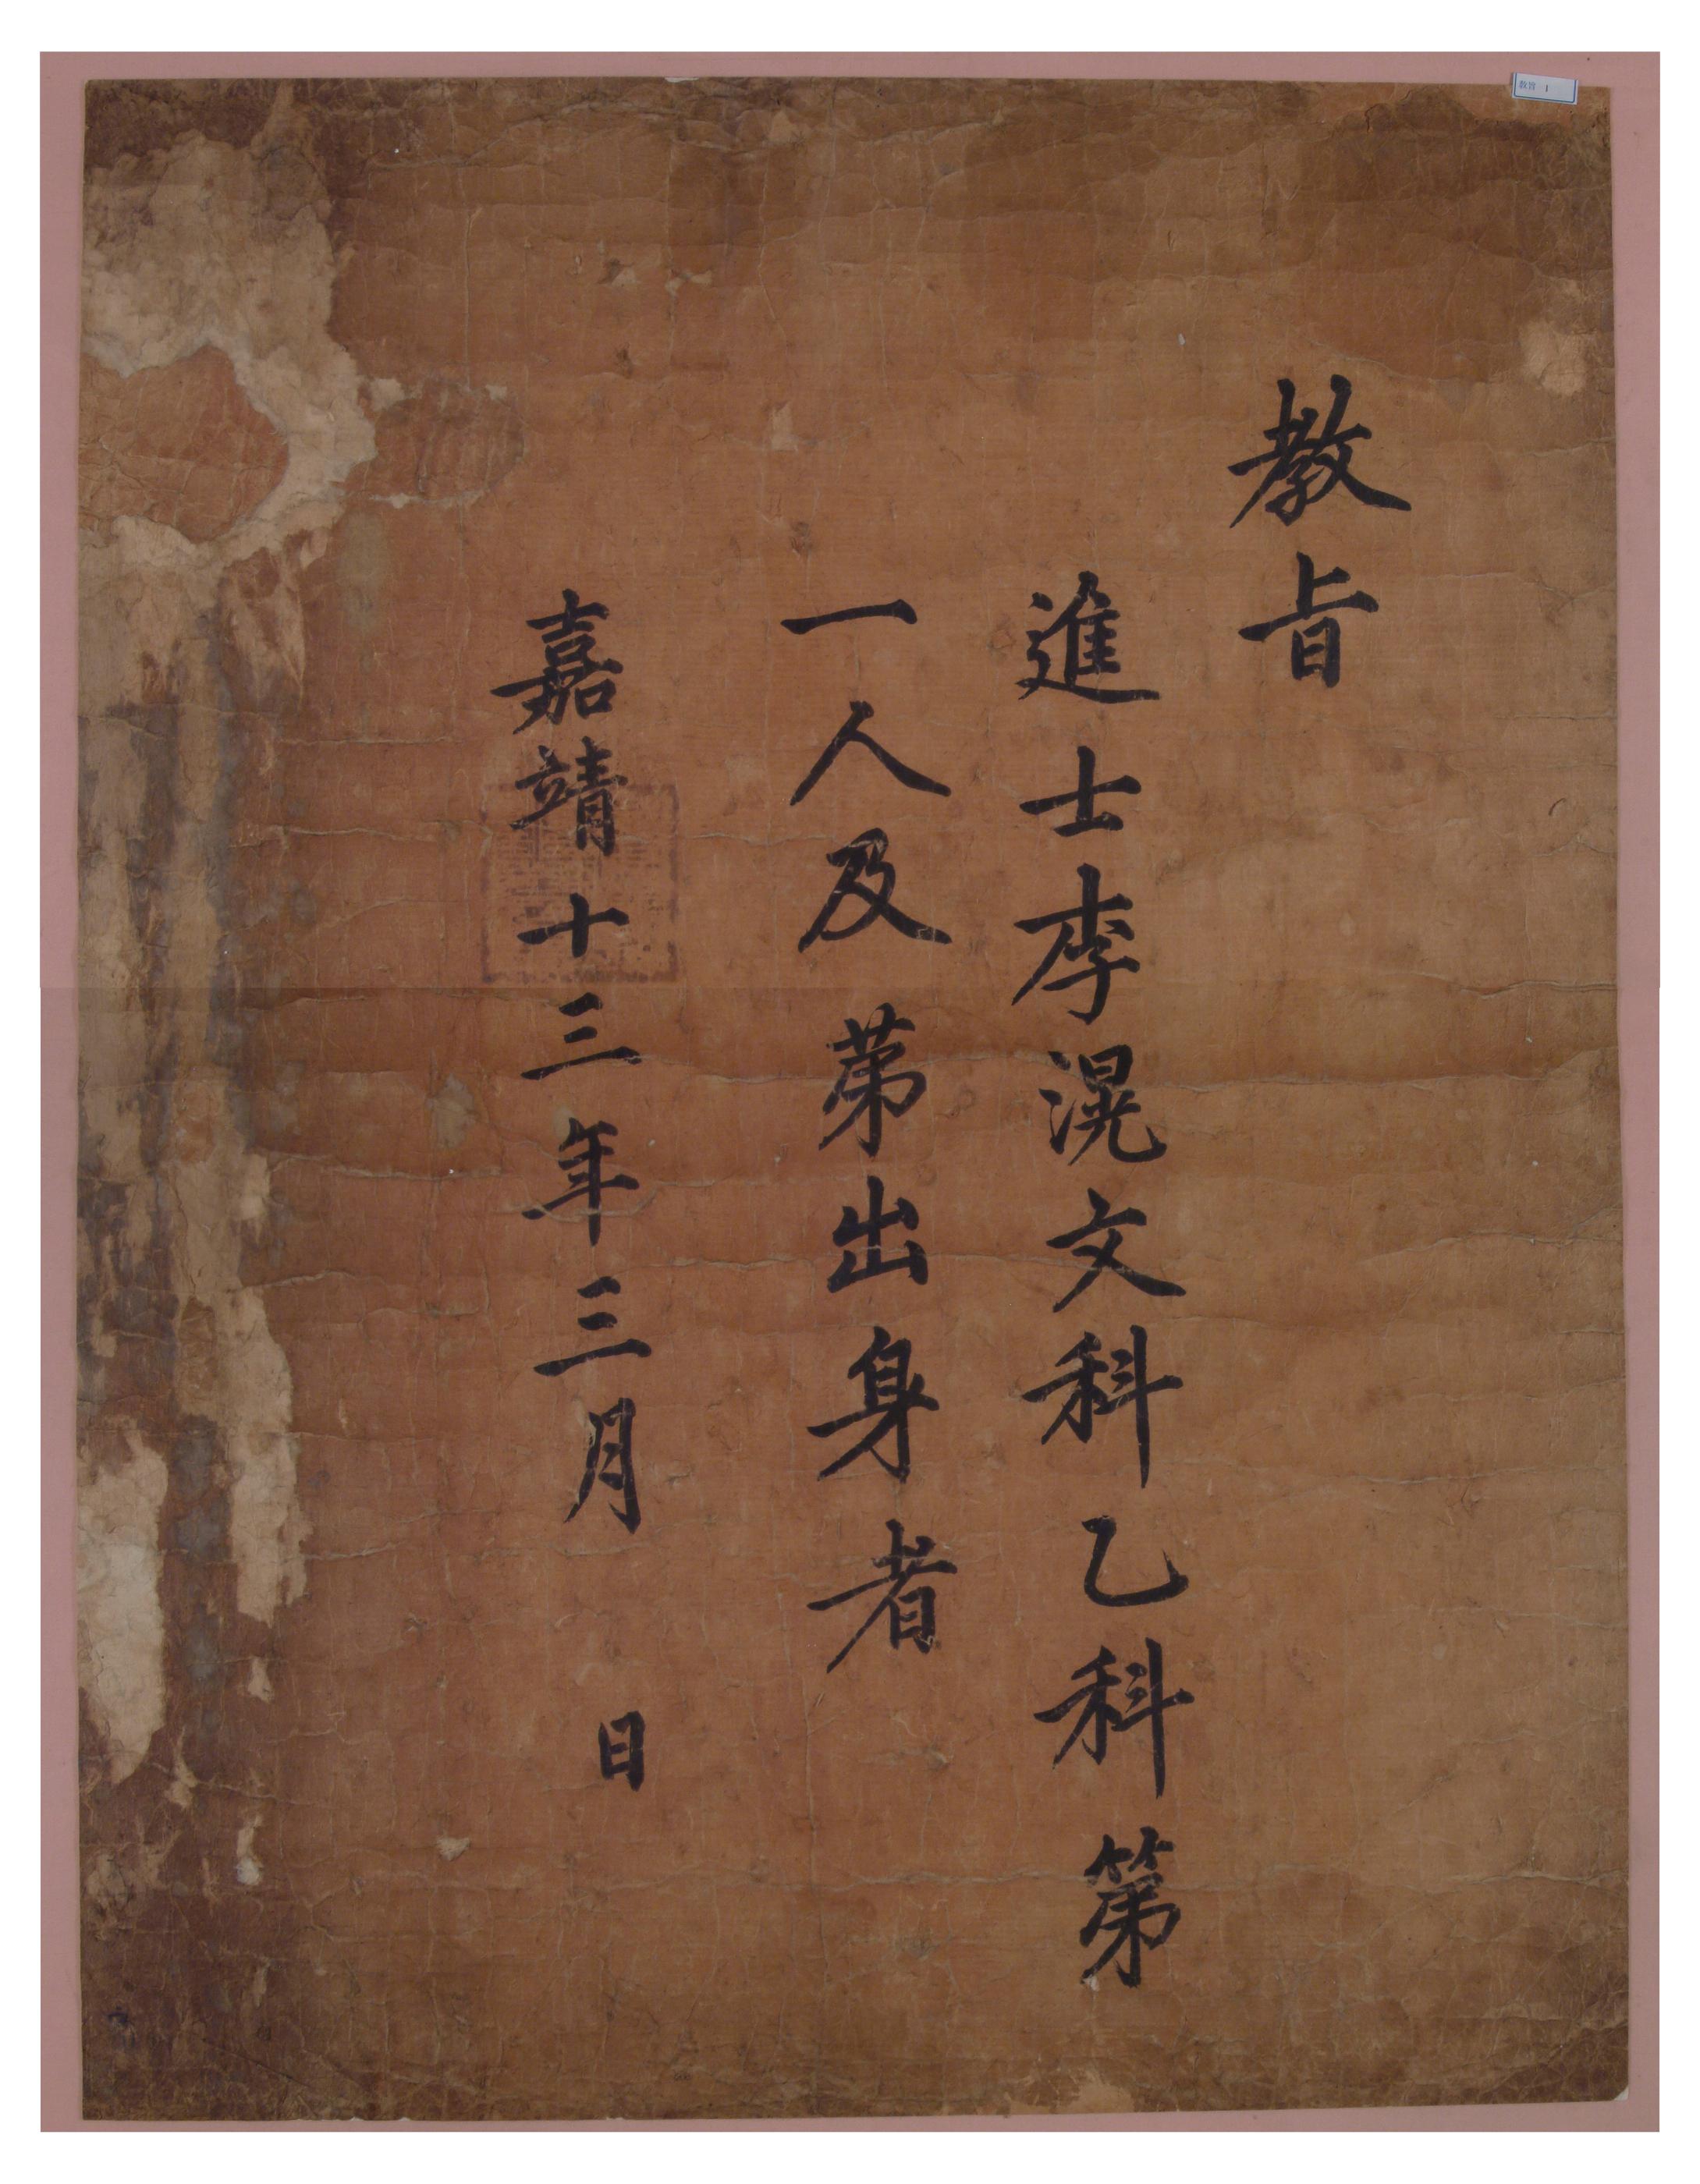 教旨
進士李滉文科乙科第
一人及苐出身者
嘉靖十三年三月 日
教旨 1